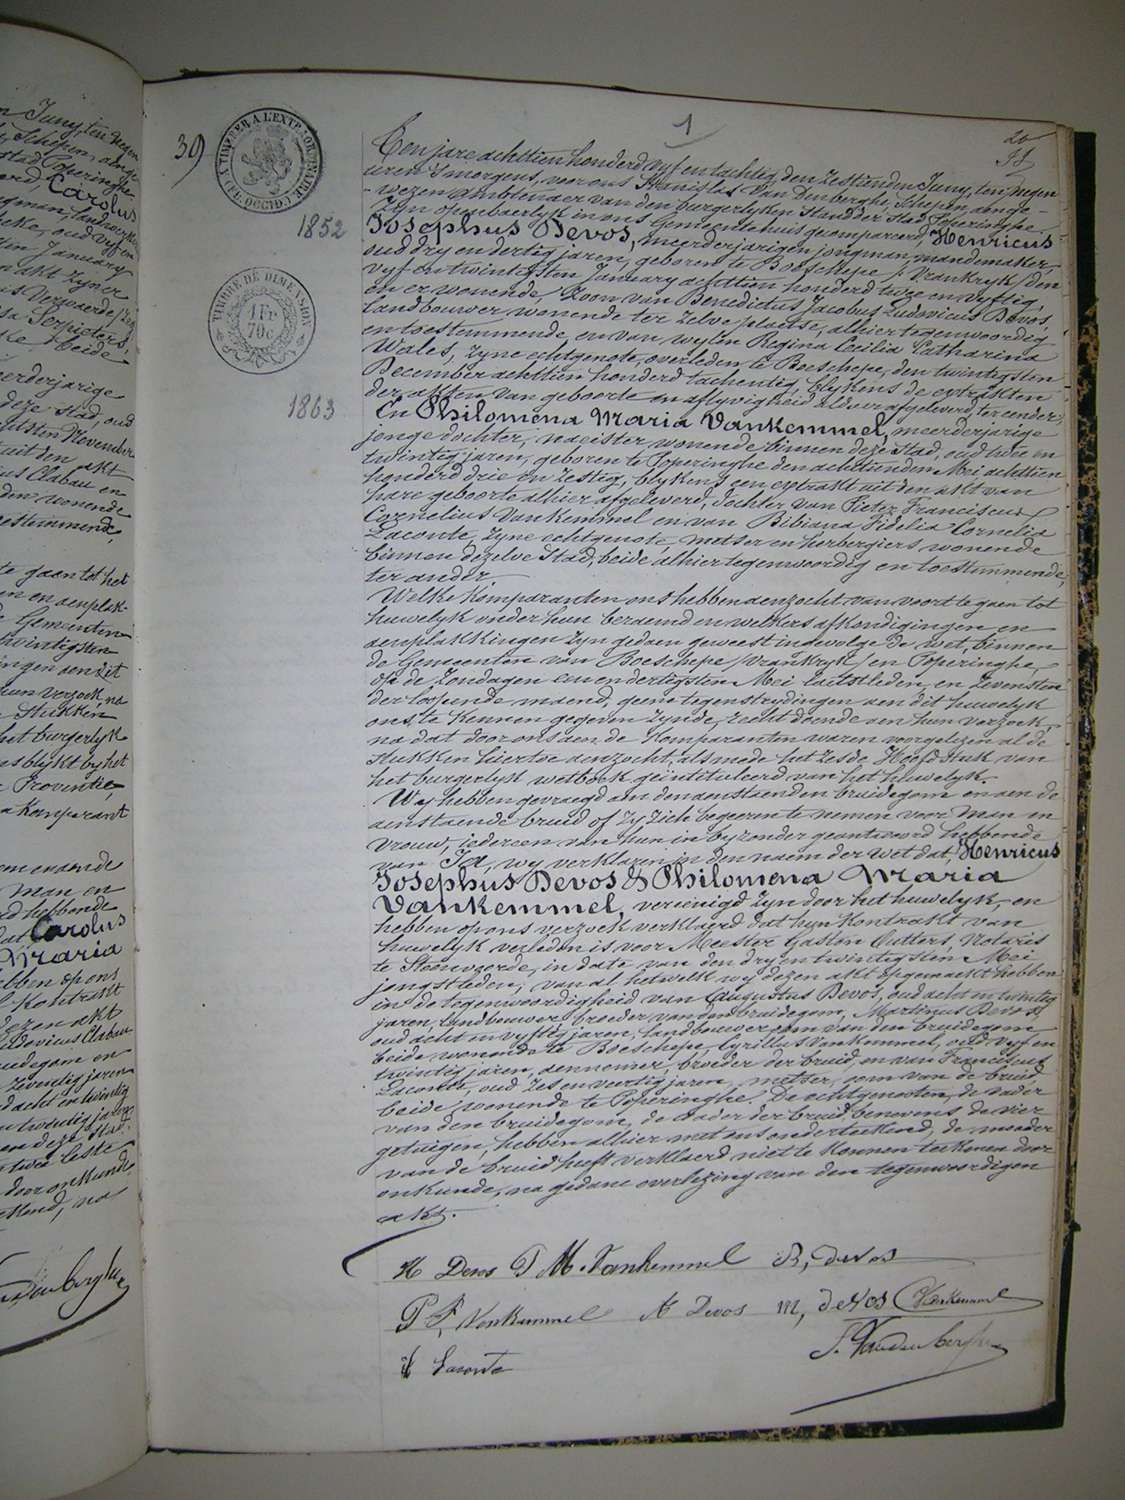 39)
TIMBRER A L'EXTRAORDINAIRE
1852
TIMBRE DE DIMENSION
1 Fr
70c
1863
1
20
Een jare achttien honderd vyf en tachtig den zestienden Juny, ten negen
uren 's morgens, voor ons Stanislas Van Denberghe, schepen aenge-
wezen ambtenaer van den burgerlyken stand der stad Poperinghe
zyn openbaerlyk in ons Gemeentehuis gecompareerd, Henricus
Josephus Devos, meerderjarigen jongman, mandemaker,
oud dry en dertig jaren, geboren te Boeschepe (Vrankryk) den
vyf en twintigsten January achttien honderd twee en vyftig,
en er wonende, zoon van Benedictus Jacobus Ludovicus Devos,
landbouwer wonende ter zelve plaetse, alhier tegenwoordig
en toestemmende, en van wylen Regina Cecilia Catharina
Wales, zyne echtgenote, overleden te Boeschepe, den twintigsten
December achttien honderd tachentig, blykens de extrakten
der akten van geboorte en aflyvigheid alhier afgeleverd, ter eender;
En Philomena Maria Vankemmel, meerderjarige
jonge dochter, naeister wonende binnen deze stad, oud twee en
twintig jaren, geboren te Poperinghe den achttienden Mei achttien
honderd drie en zestig, blykens een extrakt uit den akt van
hare geboorte alhier afgeleverd, dochter van Pieter Franciscus
Cornelius Vankemmel en van Bibiana Fidelia Cornelia
Laconte, zyne echtgenote, metser en herbergiers wonende
binnen dezelve stad, beide alhier tegenwoordig en toestemmende,
ter ander.
Welke komparanten ons hebben aenzocht van voort te gaen tot
huwelyk onder hun beraemd en welkers afkondigingen en
aenplakkingen zyn gedaen geweest ingevolge de wet, binnen
de Gemeenten van Boeschepe (Vrankryk) en Poperinghe,
op de zondagen een en dertigsten Mei laetstleden, en zevensten
der loopende maend, geene tegenstrydingen aen dit huwelyk
ons te kennen gegeven zynde, recht doende aen hun verzoek,
na dat door ons aen de komparanten waren voorgelezen al de
stukken hiertoe aenzocht, als mede het zesde Hoofdstuk van
het burgerlyk wetboek geïntituleerd van het huwelyk.
Wy hebben gevraegd aen den aenstaenden bruidegom en aen de
aenstaende bruid of zy zich begeeren te nemen voor man en
vrouw, iedereen van hun in byzonder geantwoord hebbende
van Ja, wy verklaren in den naem der wet dat, Henricus
Josephus Devos & Philomena Maria
Vankemmel, vereenigd zyn door het huwelyk, en
hebben op ons verzoek verklaerd dat hyn kontrakt van
huwelyk verleden is voor Meester Gaston Outters, Notaris
te Steenvoorde, in date van den dry en twintigsten Mei
jongstleden; van al hetwelk wy dezen akt opgemaekt hebben
in de tegenwoordigheid van Augustus Devos, oud acht en twintig
jaren, landbouwer, broeder van den bruidegom, Martinus Devos
oud acht en vyftig jaren, landbouwer, oom van den bruidegom,
beide wonende te Boeschepe, Cyrillus Vankemmel, oud vyf en
twintig jaren, aennemer, broeder der bruid, en van Franciscus
Laconte, oud zes en veertig jaren, metser, oom van de bruid
beide wonende te Poperinghe. De echtgenooten, de vader
van den bruidegom, de vader der bruid, benevens de vier
getuigen, hebben alhier met ons onderteekend, de moeder
van de bruid heeft verklaerd niet te konnen teekenen door
onkunde, na gedane overlezing van den tegenwoordigen
akt.
H Devos P M. Vankemmel B, devos
P F, Vankemmel A Devos m, devos C Vankemmel
F Laconte S. Vandenberghe